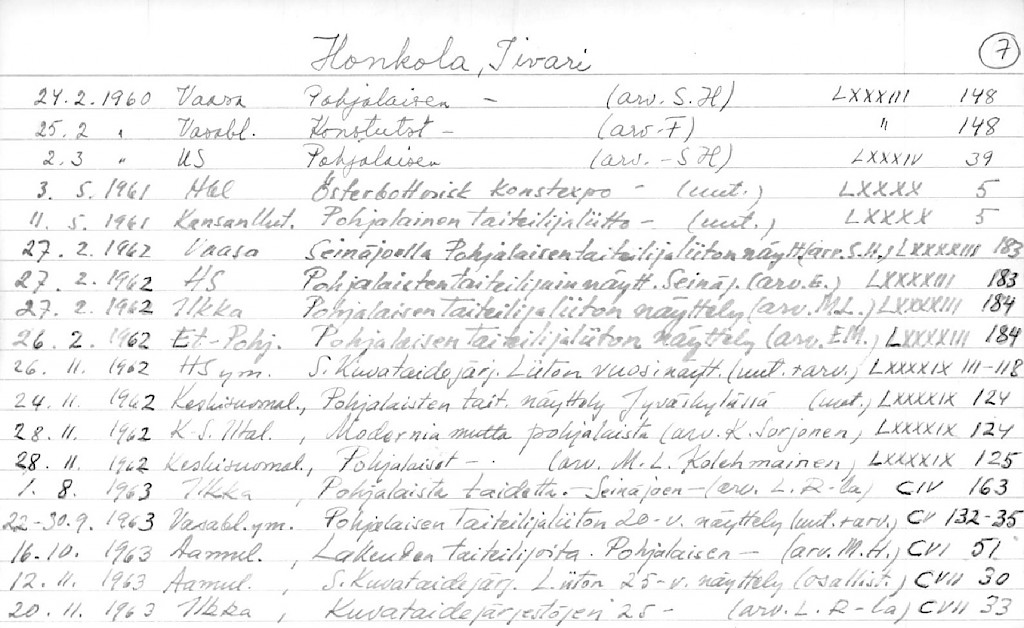 Honkola, Iivari 7
24.2.1960 Vaasa Pohjalaisen - (arv. S.H) LXXXIII 148
25.2 " Vasabl. Konstutst - (arv. F) " 148
2.3 " US Pohjalaisen (arv. - S H) LXXXIV 39
3. 5. 1961 Hbl Österbottnisk konstexpo - (uut.) LXXXX 5
11. 5. 1961 Kansanllut. Pohjalainen taiteilijaliitto - (uut.) LXXXX 5
27. 2. 1962 Vaasa Seinäjoella Pohjalaisen taiteilijaliiton näytt(arv. S.H.) LXXXXIII 183
27. 2. 1962 HS Pohjalaisten taiteilijain näytt. Seinäj. (arv. E.) LXXXXIII 183
27. 2. 1962 Ilkka Pohjalaisen taiteilijaliiton näyttely (arv. M.L.) LXXXXIII 184
26. 2. 1962 Et-Pohj. Pohjalaisen taiteilijaliiton näyttely (arv. EM.) LXXXXIII 184
26. 11. 1962 HS ym. S. Kuvataidejärj. Liiton vuosinäytt. (uut. + arv.) LXXXXIX 111-118
24. 11. 1962 Keskisuomal., Pohjalaisten tait. näyttely Jyväskylässä (uut.) LXXXXIX 124
28. 11. 1962 K-S. Iltal. , Modernia mutta pohjalaista (arv. K. Sorjonen) LXXXXIX 124
28. 11. 1962 Keskisuomal., Pohjalaiset - . (arv. M. L. Kolehmainen) LXXXXIX 125
1. 8. 1963 Ilkka , Pohjalaista taidetta. - Seinäjoen - (arv. L. R-la) CIV 163
22-30.9. 1963 Vasabl. ym. Pohjalaisen Taiteilijaliiton 20-v. näyttely (uut. + arv.) CV 132-35
16.10. 1963 Aamul. , Lakeuden taiteilijoita. Pohjalaisen - (arv. M. H.) CVI 51
12. 11. 1963 Aamul. , S. Kuvataidejärj. Liiton 25-v. näyttely (osallist.) CVII 30
20. 11. 1963 Ilkka , Kuvataidejärjestöjen 25 - (arv. L. R-la) CVII 33